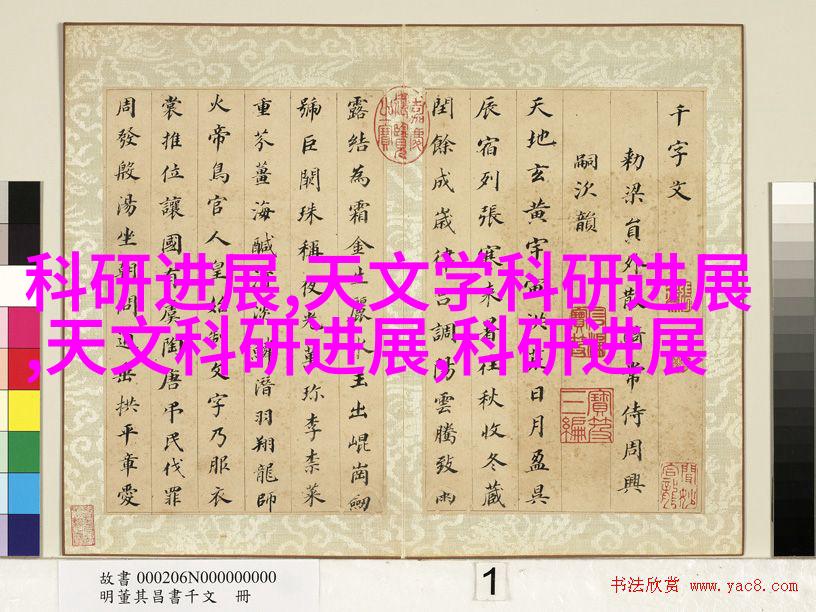 科研进展,天文学科研进展
,天文科研进展,科研进展
千字文
勑梁員外散騎常侍周興
嗣次韻
天地玄黃宇宙洪荒日月盈昃
辰宿列張寒來暑往秋收冬藏
閏餘成歲律呂調陽雲騰致雨
露結為霜金生麗水玉出崐崗劒
號巨闕珠稱夜光菓珍李柰菜
重芥薑海鹹河淡鱗潛羽翔龍師
火帝鳥官人皇始制文字乃服衣
裳推位讓國有虞陶唐弔民伐罪
周發殷湯坐朝問道垂拱平章愛
寶笈三編
故書 000206N000000000
明董其昌書千文 冊
1
书法欣赏 www.yac8.com